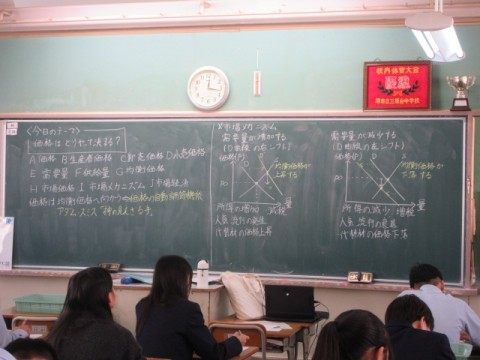 <今日のテーマ>
価格はどうやって決まる?
A 価格 B 生産者価格 C 卸売価格 D 小売価格
E 需要量 F 供給量 G 均衡価格
H 市場価格 I 市場メカニズム J 市場経済
価格は均衡価格へ向かう＝価格の自動調節機能
アダム・スミス「神の見えざる手」
需要量が増加する
(D曲線の右シフト)
価格(P)
D
S
均衡価格が
上昇する
量
所得の増加 減税
人気 流行の発生
代替財の価格上昇
需要量が減少する
(D曲線の左シフト)
価格(P)
D
S
均衡価格が
下落する
量
所得の減少 増税
人気 流行の衰退
代替財の価格下落
校内体育大会